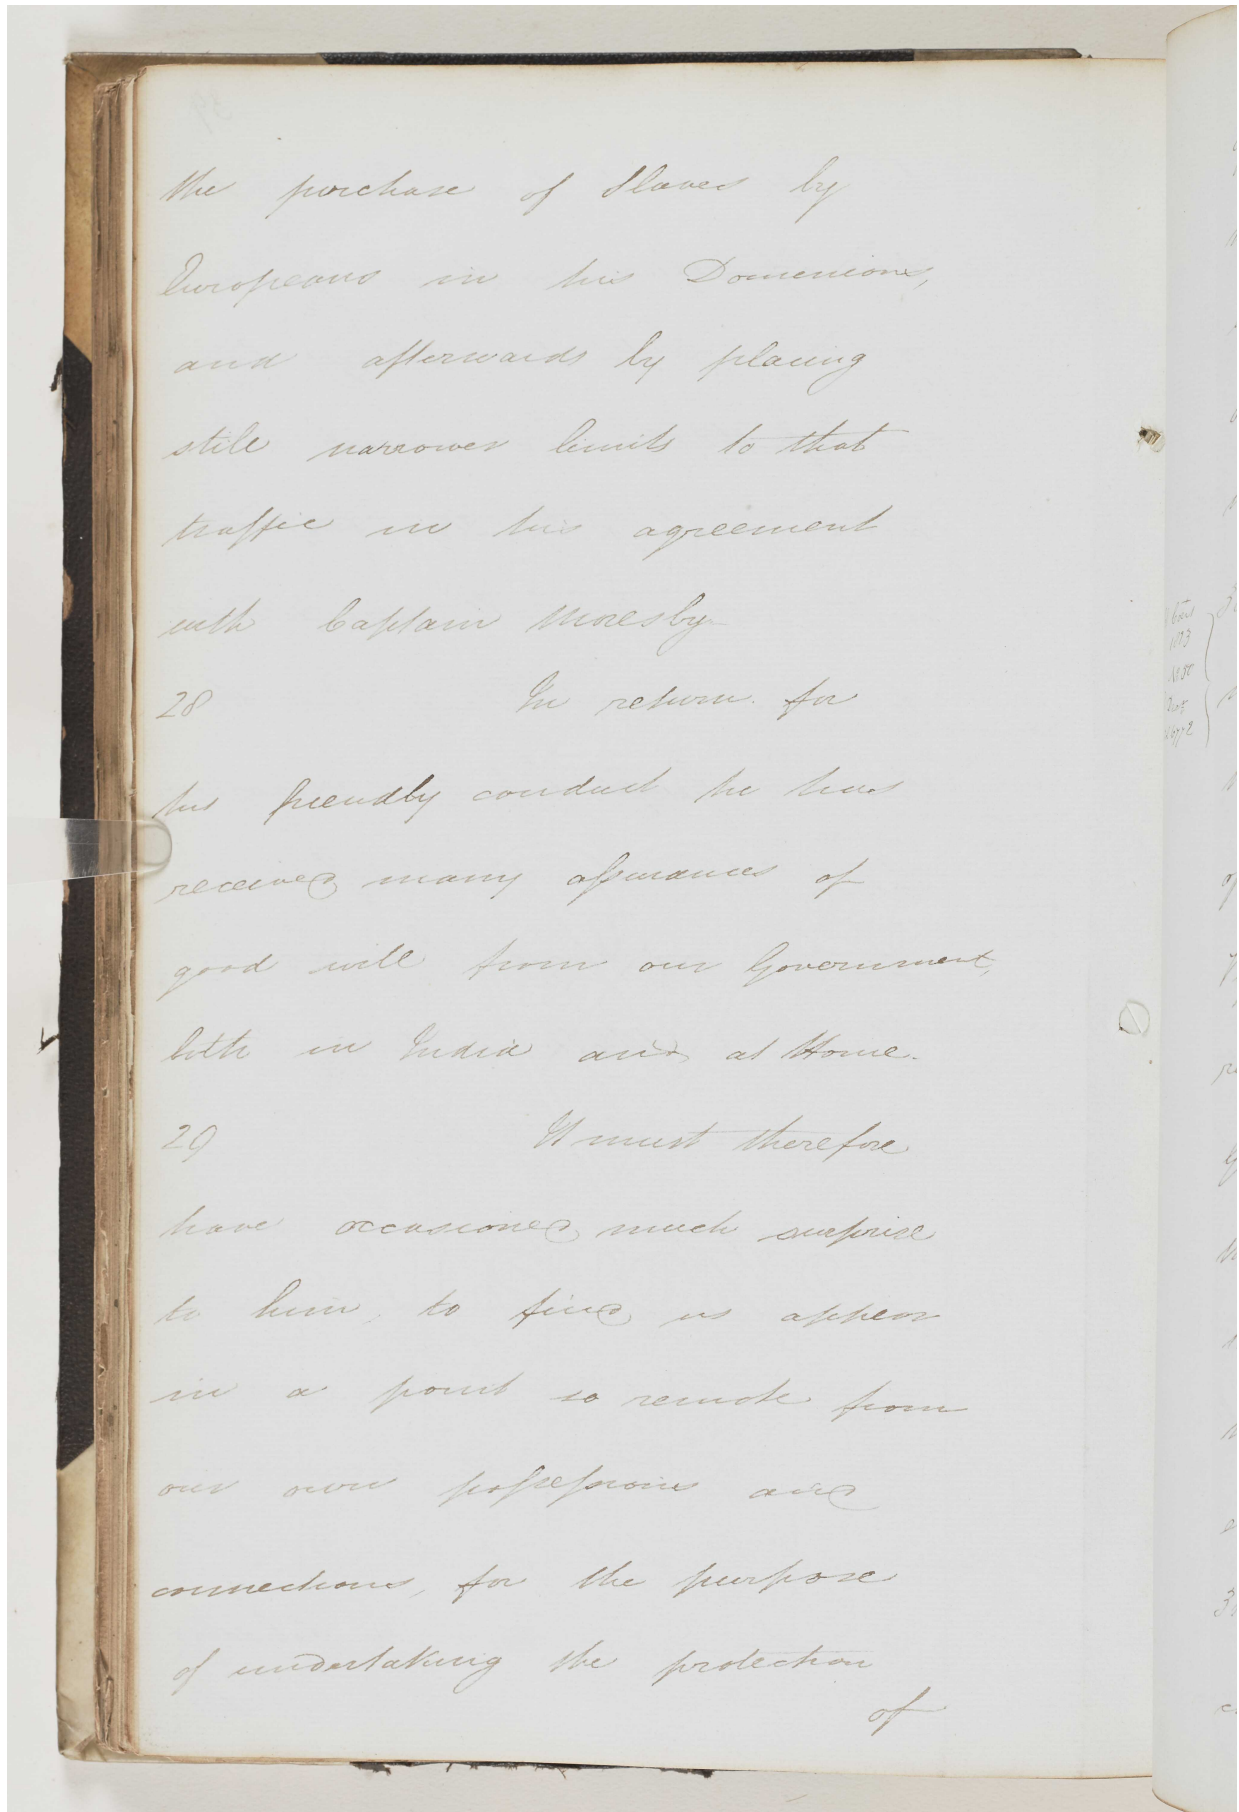 the purchase of Slaves by
Europeans in his Domenions,
and afterwards by placing
still narrower limits to that
traffic in his agreement
with Captain Moresby
28 In return for
his friendly conduct he has
received many assurances of
good will from our Government,
both in India and at Home.
29 It must therefore
have occasioned much surprise
to him, to find us appear
in a point so remote from
our own possessions and
connections, for the purpose
of undertaking the protection
of